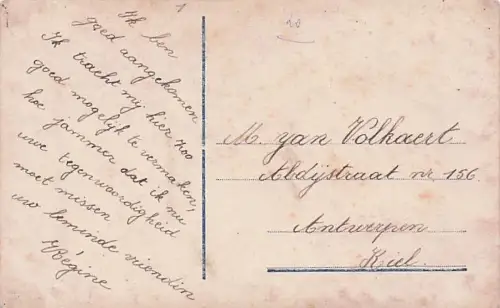 1
Ik ben
goed aangekomen
Ik tracht mij hier zoo
goed mogelijk te vermaken,
hoe jammer dat ik nu
uwe tegenwoordigheid
moet missen
uw beminde vriendin
Régine
20
M. van Volkaert.
Abdijstraat nr 156.
Antwerpen
Kiel.